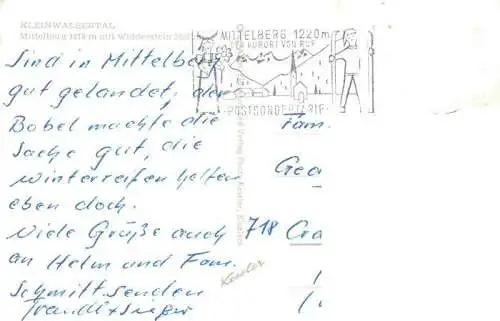 KLEINWALSERTAL
Mittelberg 1218 m mit Widderstein
MITTELBERG 1220m
DER KURORT VON RUF
POSTSONDERTARIF
Sind in Mittelberg
gut gelandet, der
Bobel machte die
Sache gut, die
Winterreifen helfen
eben doch.
Viele Grüße auch
an Helm und Fam.
Schmitt. senden
Fam.
Gea
718 Cra
Kessler